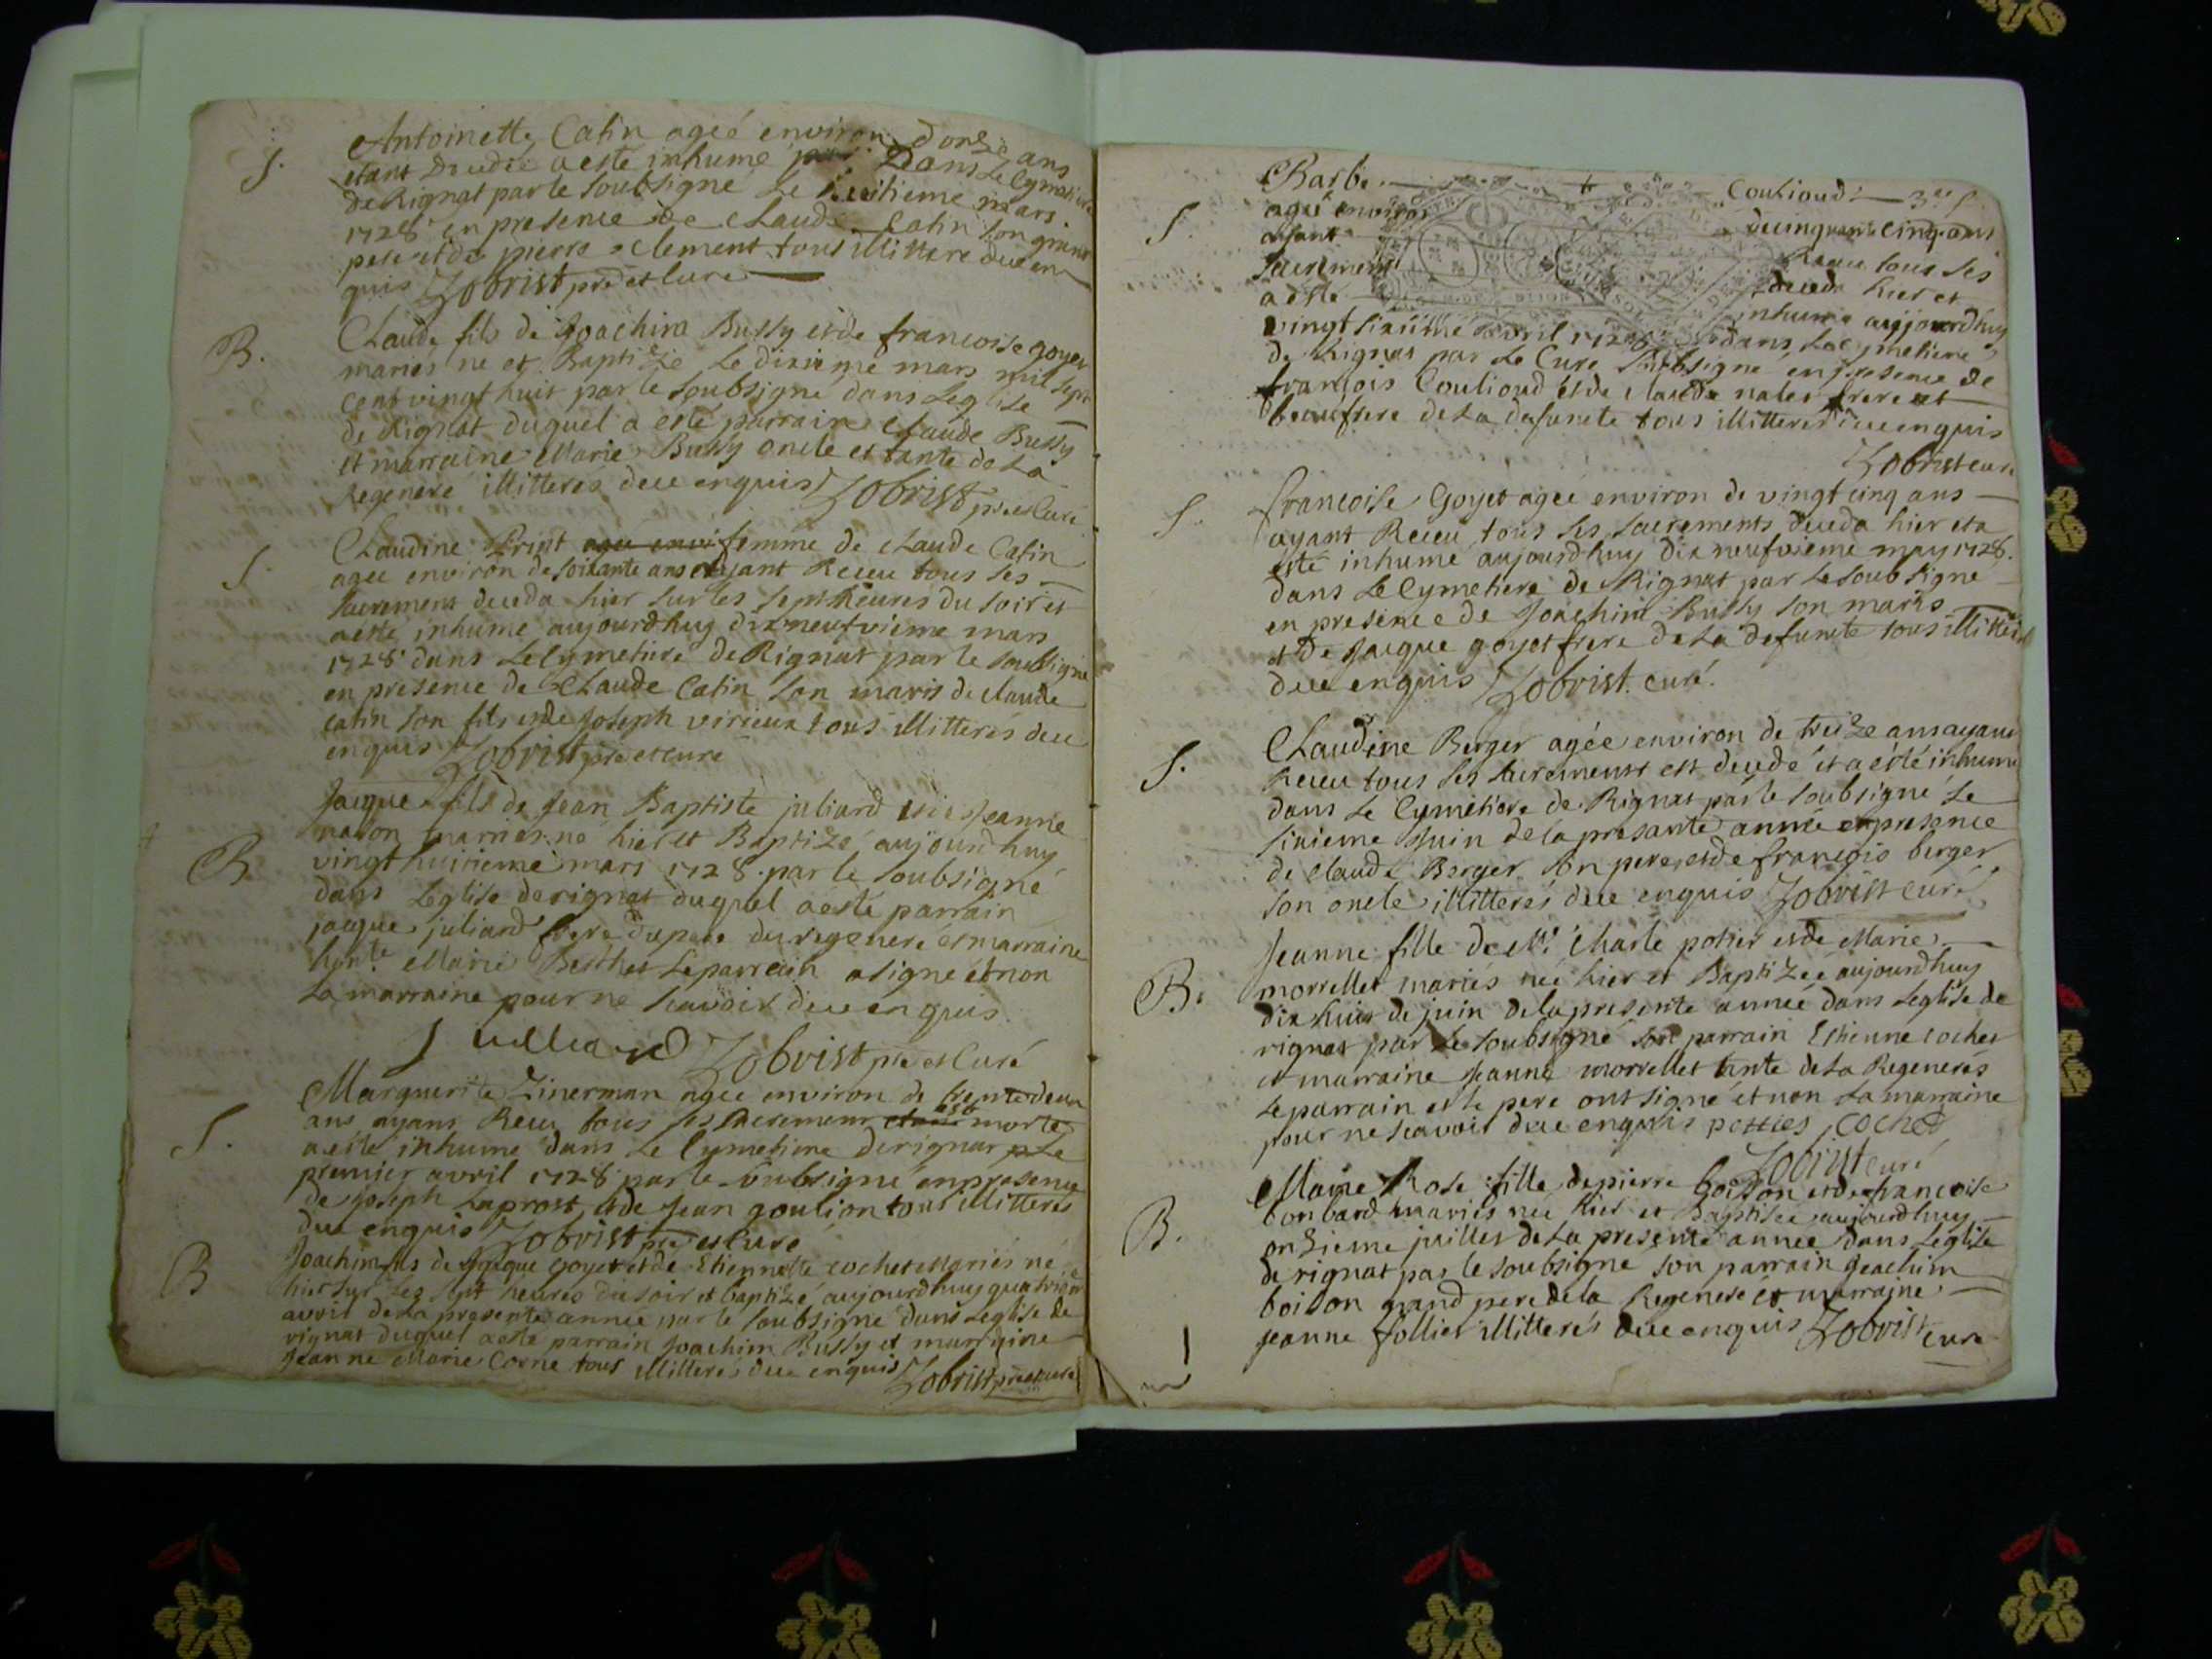 S.
Antoinette Catin ageé environ donze ans
etant decedée a esté inhumé dans le Cymetiere
de Rignat par le soubsigné le huitieme mars
1728 en presence de Claude Catin son grand
pere et de pierre Clement tous illittere deu en
quis Zobrist pre et Curé
B.
Claude fils de Joachim Bussy et de francoise goyet
mariés ne et Baptizé le dixieme mars mil sept
cent vingt huit par le soubsigné dans Leglise
de Rignat duquel a esté parrain Claude Bussy
et marraine Marie Bussy oncle et tante de La
Regeneré illitterés deu enquis Zobrist pre et Curé
S.
Claudine Print agee envi femme de Claude Catin
agee environ de soixante ans ayant Receu tous ses
sacrement deceda hier sur les sept heures du soir et
a esté inhumé aujourdhuy dix neufvieme mars
1728 dans le Cymetiere de Rignat par le soubsigné
en presence de Claude Catin son maris de Claude
catin son fils et de Joseph virieux tous illitterés deu
enquis Zobrist pre et curé
B
Jacque fils de Jean Baptiste juliard et de Jeanne
mariés né hier et Baptizé aujourdhuy
vingt huitieme mars 1728 par le soubsigné
dans Leglise de rignat duquel a esté parrain
jacque juliard frere du pere du regeneré et marraine
Marie Berthet Le parrain a signé et non
La marraine pour ne scavoir deu enquis
Julliard Zobrist pre et Curé
S.
Marguerite Zinerman agee environ de trente deux
ans ayans Receu tous ses sacrement etant est morte
a esté inhumé dans le Cymetiere de rignat le
premier avvril 1728 par le soubsigné en presence
de Joseph Laprost et de Jean goulion tous illitterés
deu enquis Zobrist pre et Curé
B
Joachim fils de Jacque goyet et de Etiennette cochet Mariés né
hier sur Les sept heures du soir et baptizé aujourdhuy quatrieme
avvril de La presente année par le soubsigné dans Leglise de
rignat duquel a esté parrain Joachim Bussy et marraine
Jeanne Marie Corne tous illitterés deu enquis Zobrist pre et curé
S.
Barbe Coulioud 3.e S
ageé environ de cinquante cinq ans
ayant Receu tous ses
sacrement deceda hier et
a esté inhumé aujourdhuy
vingt sixiéme avvril 1728 dans Le Cymetiere
de Rignat par Le Curé soubsigné en presence de
francois Coulioud et de Claude nalet frere et
beaufrere de La defuncte tous illitterés deu enquis
Zobrist curé
S.
francoise Goyet agée environ de vingt cinq ans
ayant Receu tous ses sacrements deceda hier et a
esté inhumé aujourdhuy dix neufvieme may 1728.
dans Le Cymetiere de Rignat par Le soubsigné
en presence de Joachim Bussy son maris
et de Jacque goyet frere de La defuncte tous illitterés
deu enquis Zobrist. curé.
S.
Claudine Berger agée environ de treize ans ayant
Receu tous ses sacrements est decedé et a esté inhumé
dans Le Cymetiere de Rignat par le soubsigné Le
sixieme Juin de la presante année en presence
de Claude Berger son pere, et de francois berger
son oncle illitterés deu enquis Zobrist curé
B.
Jeanne fille de Mr Charle potier et de Marie
morrellet mariés née hier et Baptizeé aujourdhuy
dix huit de juin de la presente année dans Leglise de
rignat par Le soubsigné son parrain Etienne cochet
et marraine Jeanne morrellet tante de La Regenerés
Le parrain et le pere ont signé et non La marraine
pour ne scavoir deu enquis potties cochet
Zobrist curé
B.
Marie Rose fille de pierre boison et de francoise
bonbard mariés née hier et Baptisée aujourdhuy
onzieme juillet de La presente année dans Leglise
de rignat par le soubsigne son parrain Joachim
boison grand pere de la Regeneré et marraine
Jeanne follier illitterés deu enquis Zobrist curé